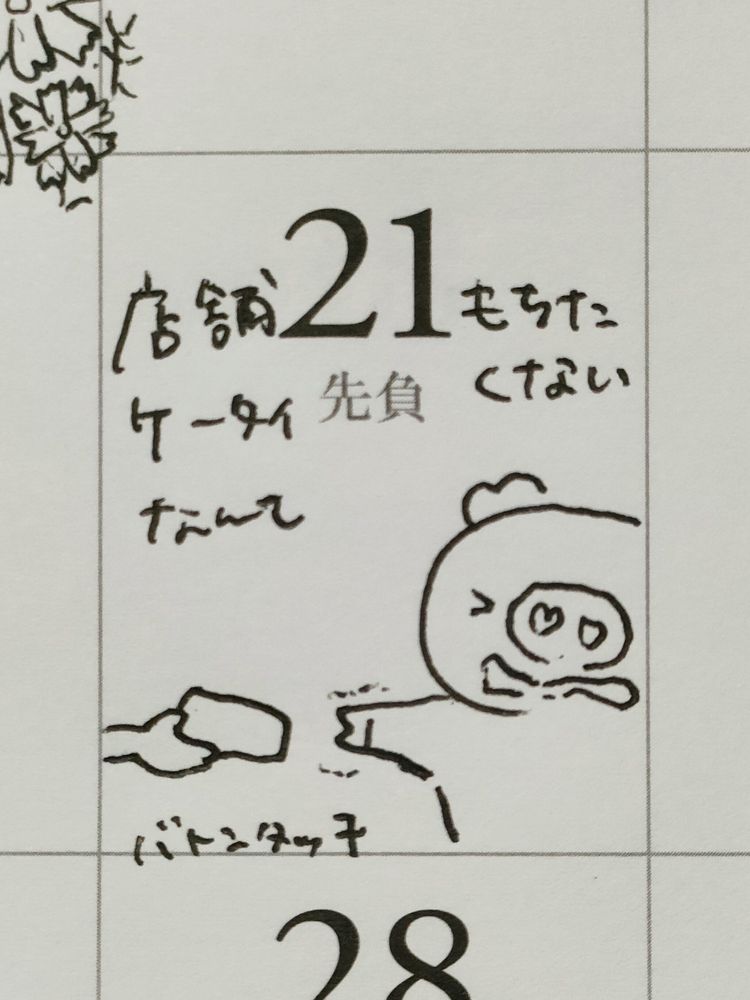 21
先負
店舗
ケータイ
なんて
もちた
くない
バトンタッチ
28